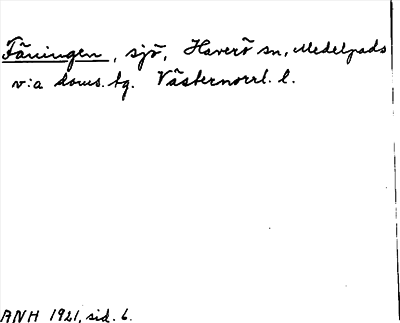 Fåningen, sjö, Haverö sn, Medelpads
v:a doms. tg. Västernorrl. l.
ANH 1921, sid. 6.